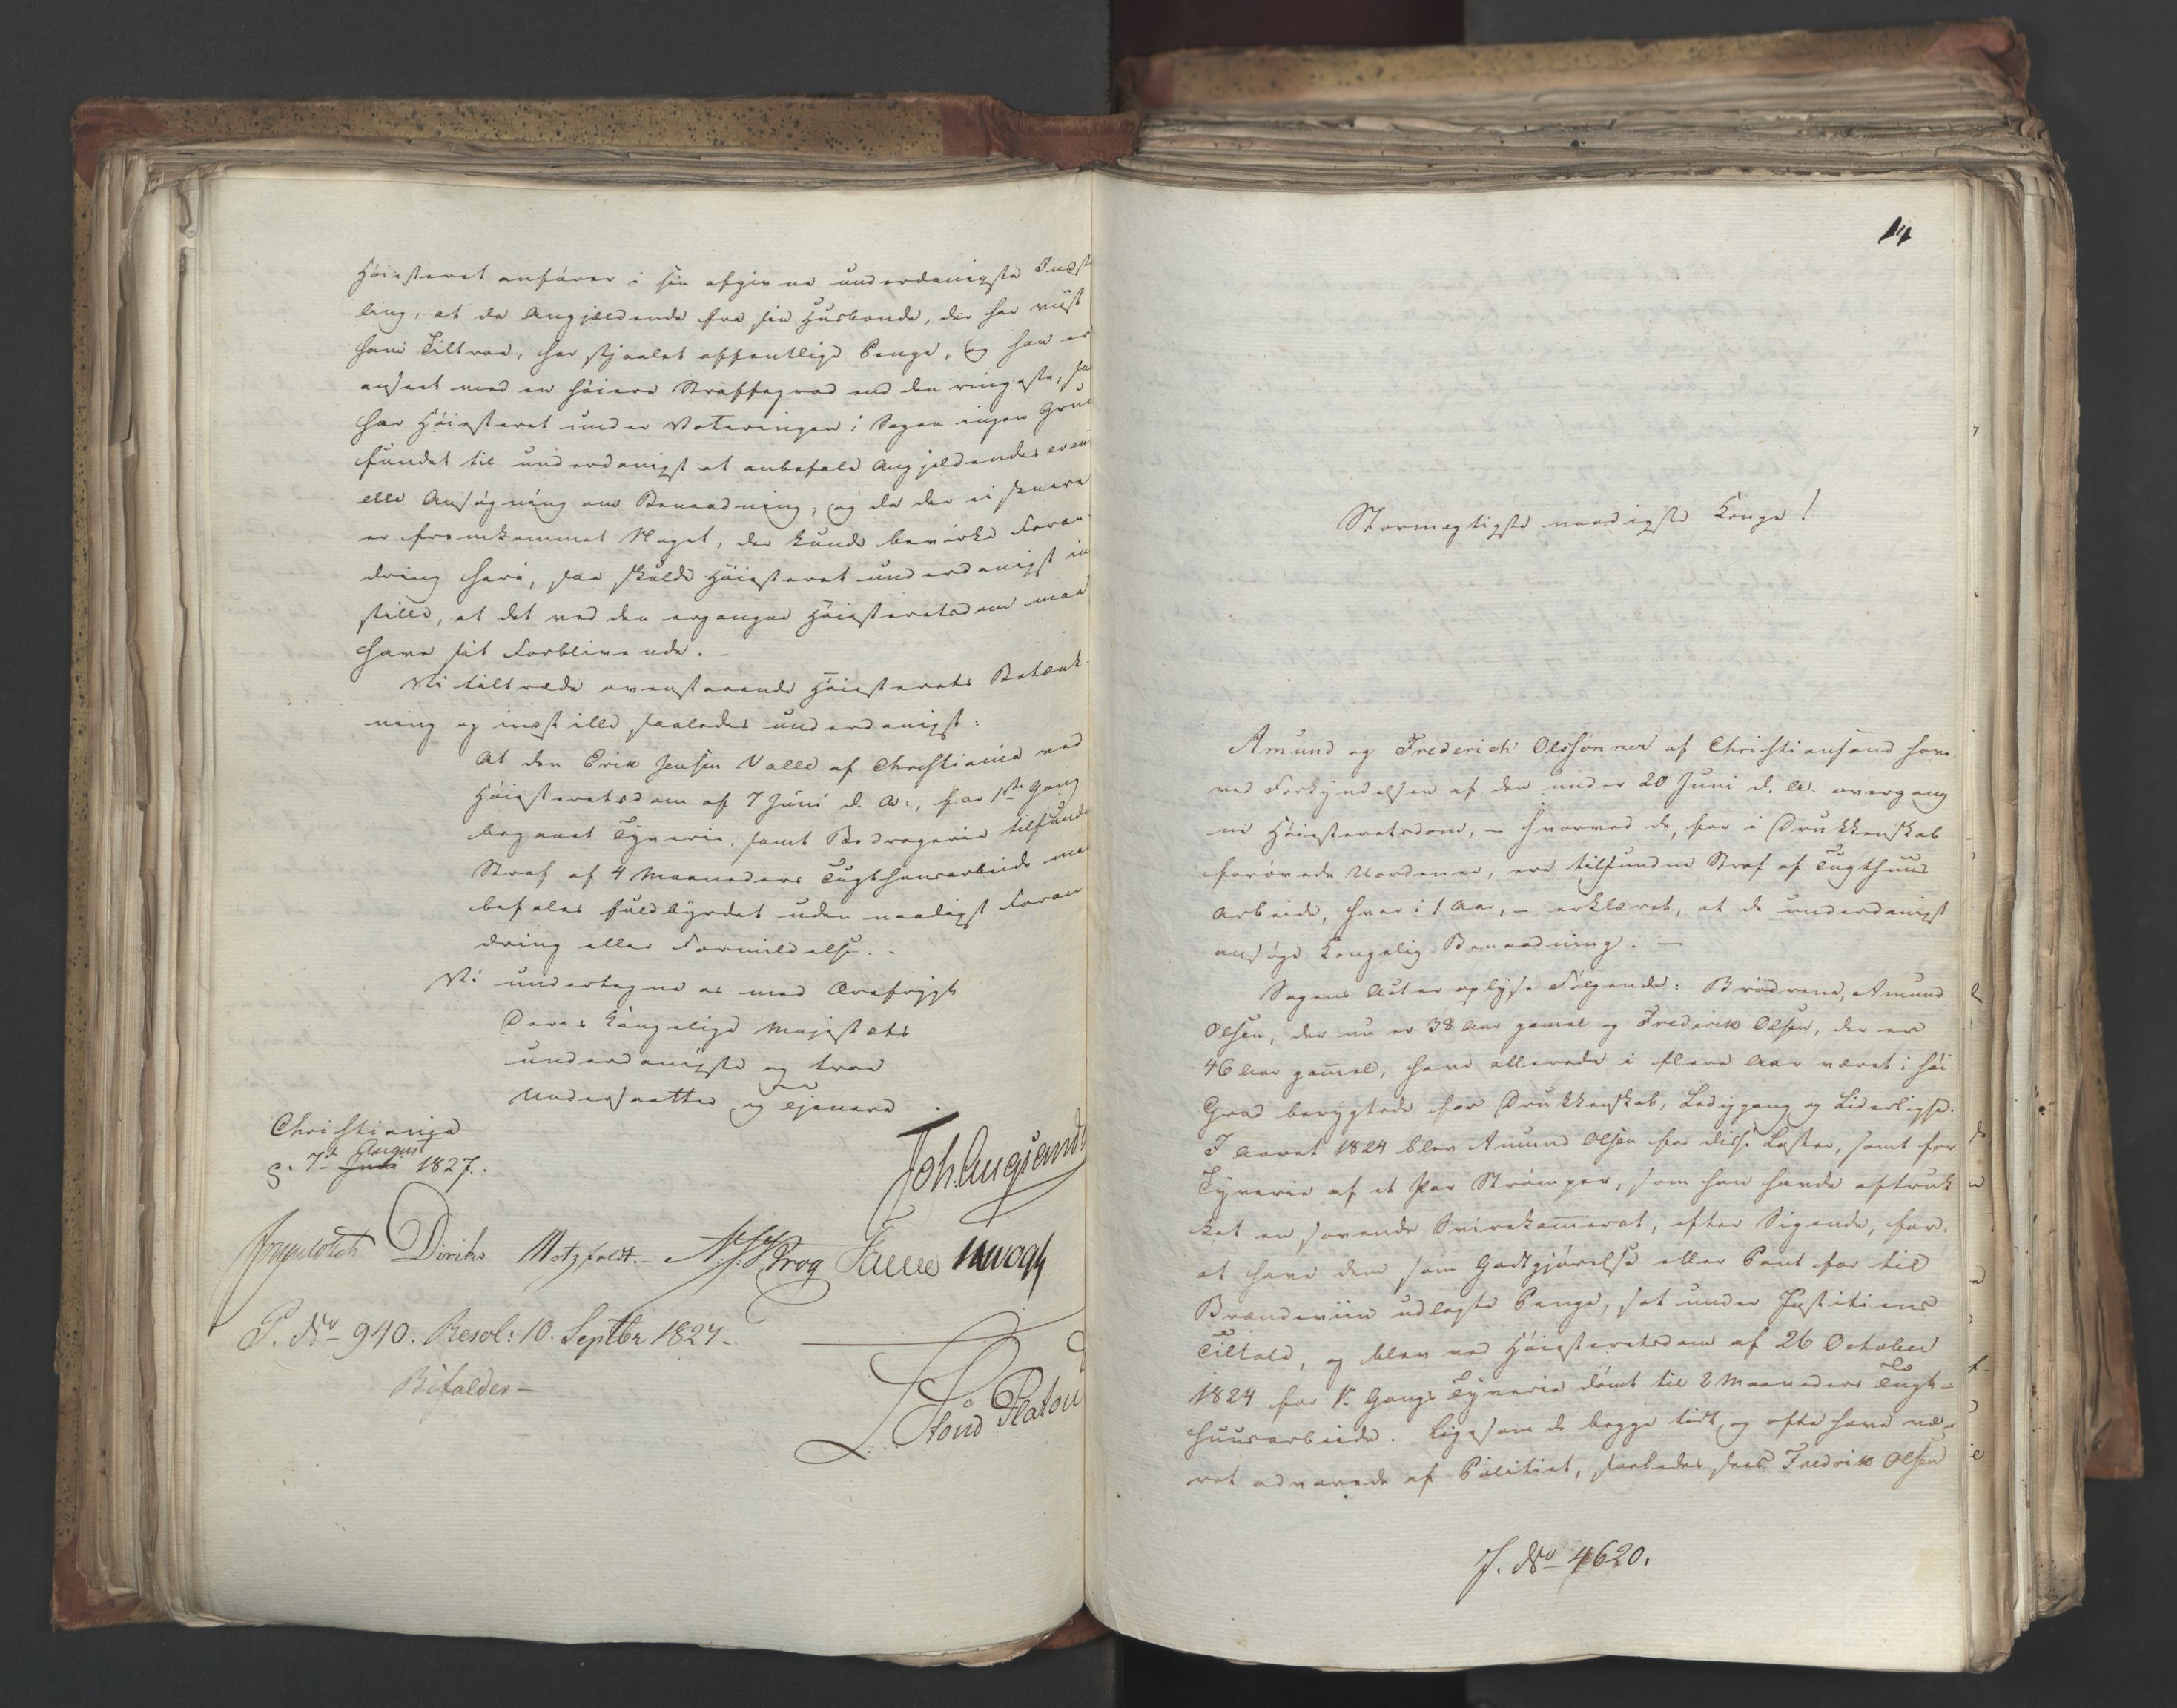 Høiesteret anfører i sin afgivne underdanigste Indst
ling, at da Angjældende fra sin Huusbonde, der har viist
ham Tiltroe, har stjaalet offentlige Penge, og han er
anseet med en høiere Straffegrad end den ringeste, saa
har Høiesteret under Voteringen i Sagen ingen Grun
fundet til underdanigst at anbefale Angjeldendes even
elle Ansøgning om Benaadning, og da der ei senere
er fremkommet Noget, der kunde bevirke Foran
dring heri, saa skulde Høiesteret underdanigst in
stille, at det ved den ergangne Høiesteretsdom maa
have sit Forblivende. -
Vi tiltræde ovenstaaende Høiesterets Betænk
ning og indstille saaledes underdanigst:
At den Erik Jensen Valle af Christiania ved
Høiesteretsdom af 7 Juni d. A:, for 1ste Gang
begaaet Tyverie, samt Bedragerie tilfunde
Straf af 4 Maaneders Tugthuusarbeide maa
befales fuldbyrdet uden naadigst Foran
dring eller Formildelse. -
Vi undertegne os med Ærefrygt
Deres Kongelige Majestæts
underdanigste og troe
Undersaatter og tjenere
Christiania
d. 7de Juli August 1827.
Joh. Aug Sandt
Diriks Motzfeldt. - N. J. Krog Fasting
P. No 940. Resol: 10. Septbr 1827 -
Bifaldes -
Stoud Platou
14
Stormægtigste naadigste Konge!
Amund og Frederich Olssønner af Christiansand have
ved Forkyndelsen af den under 20 Juni d. A. overgang
ne Høiesteretsdom, - hvorved de, for i Drukkenskab
forøvede Uordener, ere tilfundne Straf af Tugthuus
Arbeide, hver i 1 Aar, - erklæret, at de underdanigst
ansøge Kongelig Benaadning. -
Sagens Acter oplyse Følgende: Brødrene, Amund
Olsen, der nu er 38 Aar gamel og Frederik Olsen, der er
46 Aar gamel, have allerede i flere Aar været i høi
Grad berygtede for Drukkenskab, Ledigang og Liderlighed.
I Aaret 1824 blev Amund Olsen for disse Laster, samt for
Tyverie af et Par Strømper, som han havde aftruk
ket en sovende Svirekamerat, efter Sigende, for
at have dem som Godtgjørelse eller Pant for til
Brændeviin udlagte Penge, sat under Justitiens
Tiltale, og blev ved Høiesteretsdom af 26 October
1824 for 1ste Gangs Tyverie dømt til 2 Maaneders Tugt-
huusarbeide. Ligesom de begge tidt og ofte have væ-
ret advarede af Politiet, saaledes sees Fredrik Olsen
J. No 4620.